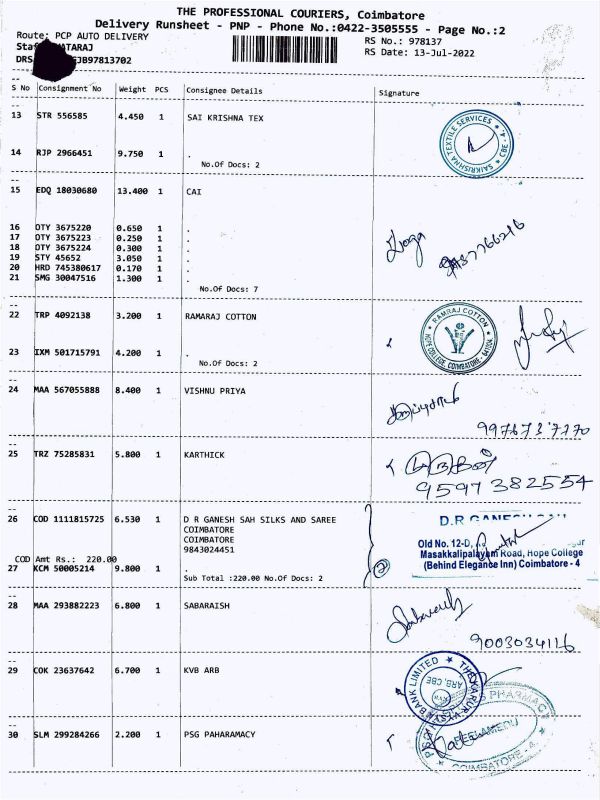 THE PROFESSIONAL COURIERS, Coimbatore
Delivery Runsheet - PNP - Phone No.:0422-3505555 - Page No.:2
Route: PCP AUTO DELIVERY
RS No.: 978137
RS Date: 13-Jul-2022
DRS
S No Consignment No Weight PCS Consignee Details Signature
13 STR 556585 4.450 1 SAI KRISHNA TEX
SAIKRISHNA TEXTILE SERVICES ★ CBE - 4. ★
14 RJP 2966451 9.750 1 .
No.Of Docs: 2
15 EDQ 18030680 13.400 1 CAI
16 OTY 3675220 0.650 1 .
17 OTY 3675223 0.250 1 .
18 OTY 3675224 0.300 1 .
19 STY 45652 3.050 1 .
20 HRD 745380617 0.170 1 .
21 SMG 30047516 1.300 1 .
No.Of Docs: 7
22 TRP 4092138 3.200 1 RAMARAJ COTTON
★ RAMRAJ COTTON ★
HOPE COLLEGE, COIMBATORE - 641004
23 IXM 501715791 4.200 1 .
No.Of Docs: 2
24 MAA 567055888 8.400 1 VISHNU PRIYA
25 TRZ 75285831 5.800 1 KARTHICK
9597382554
26 COD 1111815725 6.530 1 D R GANESH SAH SILKS AND SAREE
COIMBATORE
COIMBATORE
9843024451
COD Amt Rs.: 220.00
27 KCM 50005214 9.800 1 .
Sub Total :220.00 No.Of Docs: 2
D.R GANESH
Old No. 12-D,
Masakkalipalayam Road, Hope College
(Behind Elegance Inn) Coimbatore - 4
2
28 MAA 293882223 6.800 1 SABARAISH
9003034116
29 COK 23637642 6.700 1 KVB ARB
THE KARUR VYSYA BANK LIMITED ★
ARB, CBE
30 SLM 299284266 2.200 1 PSG PAHARAMACY
PHARMACY
PEELAMEDU
COIMBATORE - 4